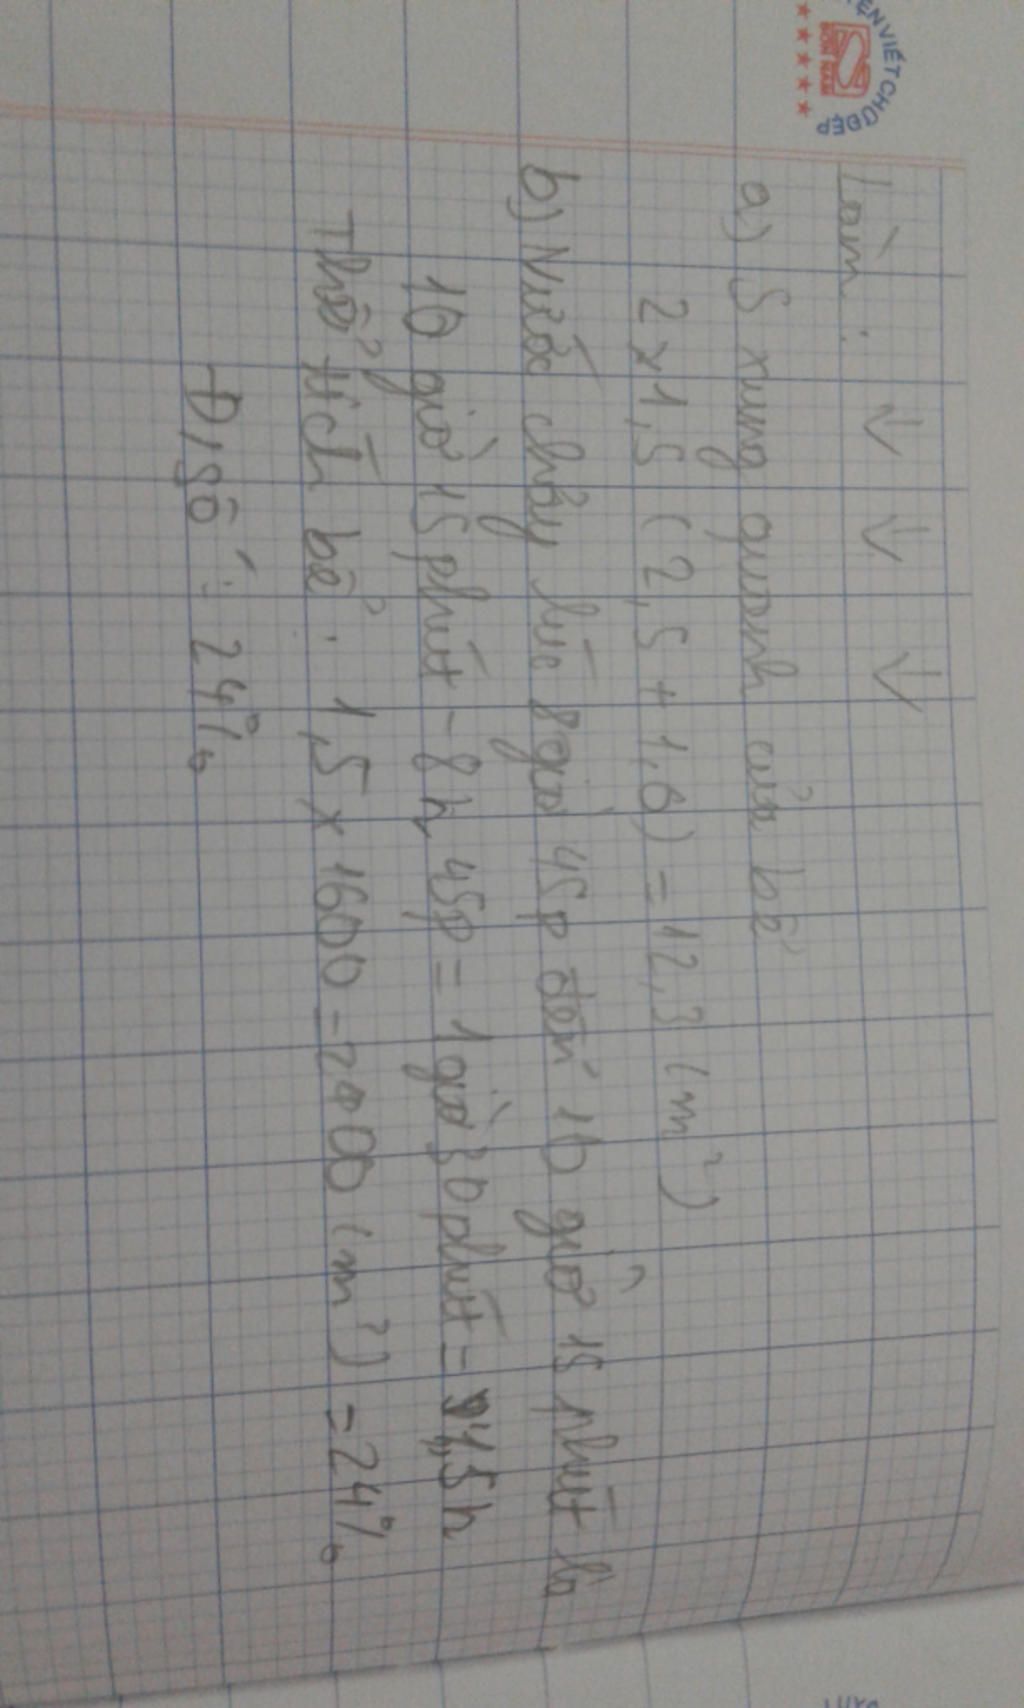 Làm:
a) S xung quanh của bể
2 x 1,5 (2,5 + 1,6) = 12,3 (m²)
b) Nước chảy lúc 8 giờ 45p đến 10 giờ 15 phút là
10 giờ 15 phút - 8h 45p = 1 giờ 30 phút = 1,5h
Thể tích bể: 1,5 x 1600 = 2400 (m³) = 24%
Đ/số: 24%
VIẾT CHỮ ĐẸP